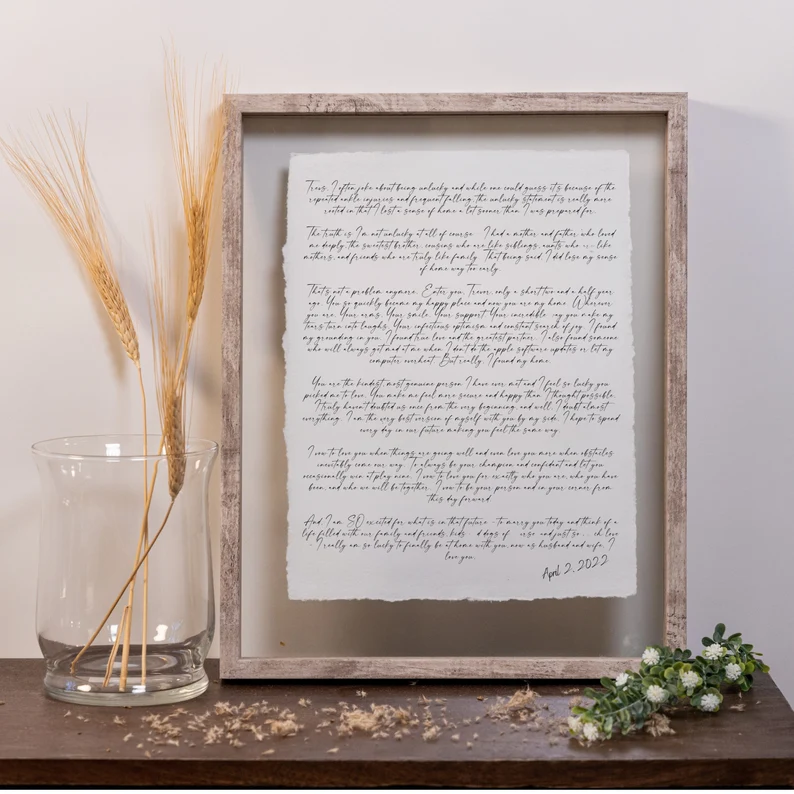 Trevs, I often joke about being unlucky and while one could guess it's because of the
repeated ankle injuries and frequent falling, the unlucky statement is really more
rooted in that I lost a sense of home a lot sooner than I was prepared for.
The truth is I'm not unlucky at all of course. I had a mother and father who loved
me deeply, the sweetest brother, cousins who are like siblings, aunts who like
mothers, and friends who are truly like family. That being said, I did lose my sense
of home way too early.
That's not a problem anymore. Enter you, Trevor, only a short two and a half year
ago. You so quickly became my happy place and now you are my home. Wherever
you are. Your arms. Your smile. Your support. Your incredible way you make my
tears turn into laughs. Your infectious optimism and constant search of joy. I found
my grounding in you. I found true love and the greatest partner. I also found someone
who will always get mad at me when I don't do the apple software updates or let my
computer overheat. But really, I found my home.
You are the kindest, most genuine person I have ever met and I feel so lucky you
picked me to love. You make me feel more secure and happy than I thought possible.
I truly haven't doubted us once from the very beginning, and well, I doubt almost
everything. I am the very best version of myself with you by my side. I hope to spend
every day in our future making you feel the same way.
I vow to love you when things are going well and even love you more when obstacles
inevitably come our way. To always be your champion and confidant and let you
occasionally win at play nine. I vow to love you for exactly who you are, who you have
been, and who we will be together. I vow to be your person and in your corner from
this day forward.
And I am SO excited for what is in that future - to marry you today and think of a
life filled with our family and friends, kids dogs of and just so... ch love
- I really am so lucky to finally be at home with you, now as husband and wife. I
love you.
April 2, 2022